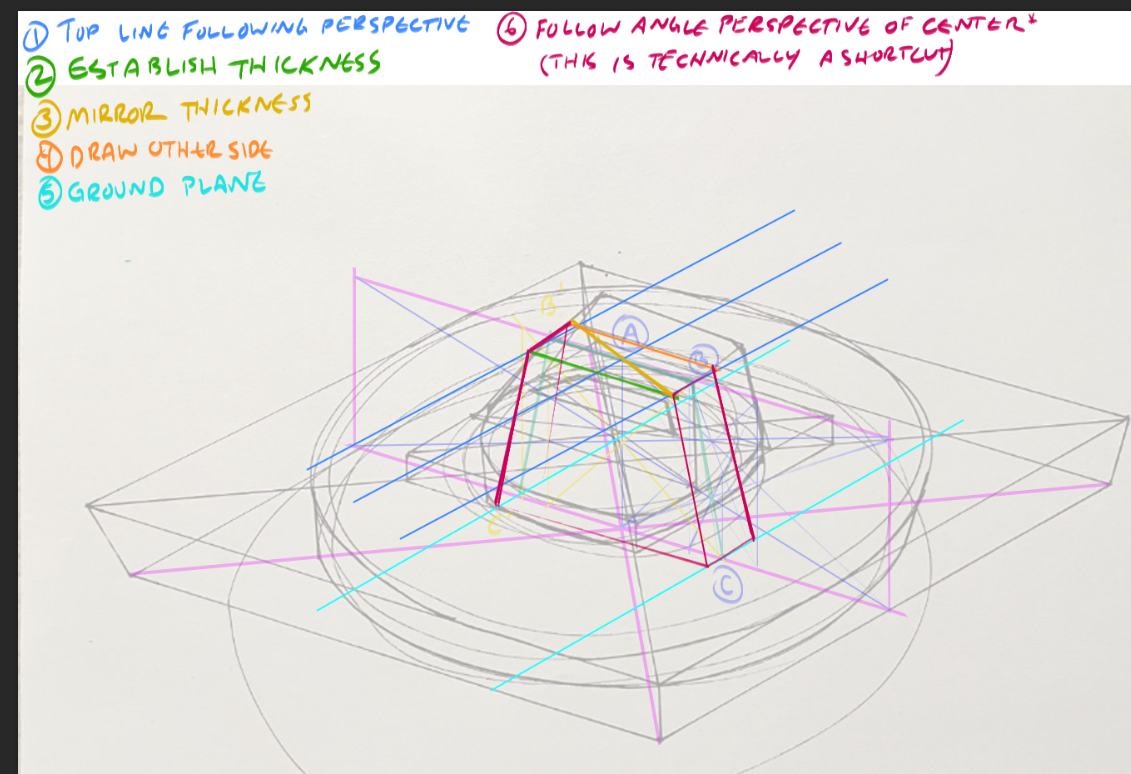 ① TOP LINE FOLLOWING PERSPECTIVE
② ESTABLISH THICKNESS
③ MIRROR THICKNESS
④ DRAW OTHER SIDE
⑤ GROUND PLANE
⑥ FOLLOW ANGLE PERSPECTIVE OF CENTER*
(THIS IS TECHNICALLY A SHORTCUT)
B'
A
B
C'
C